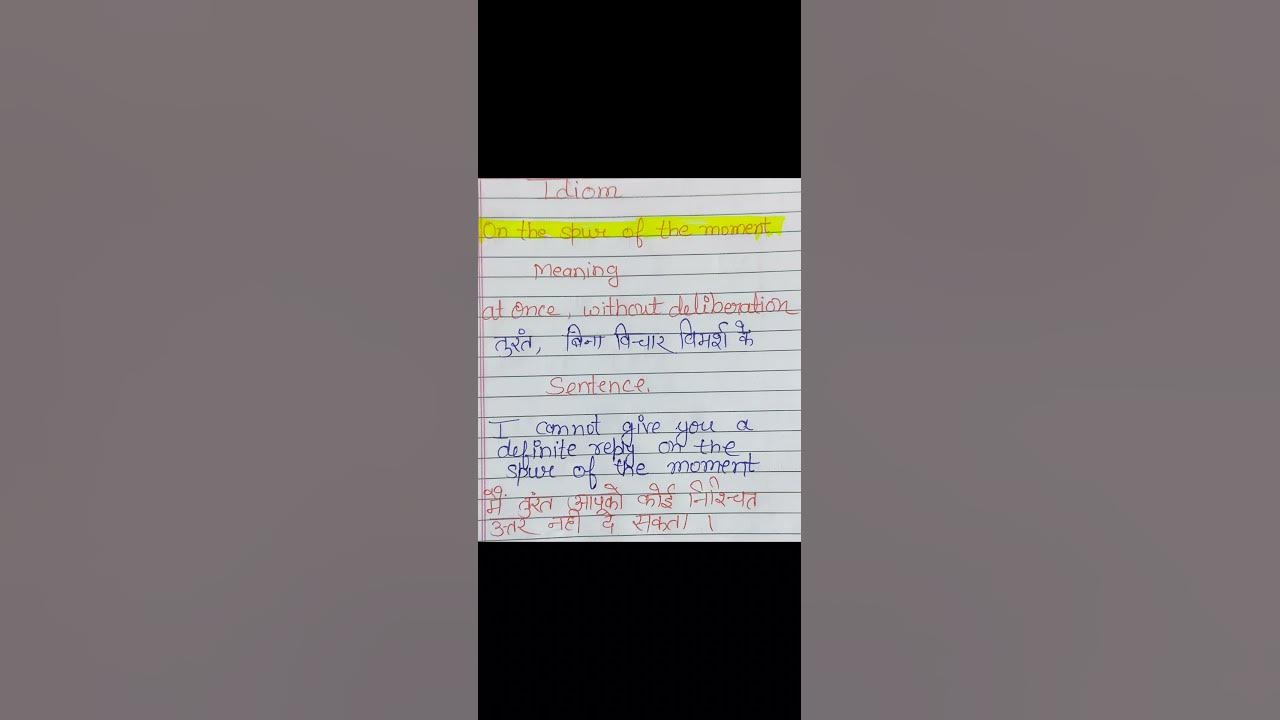 Idiom
On the spur of the moment
Meaning
at once, without deliberation
तुरंत, बिना विचार विमर्श के
Sentence.
I cannot give you a
definite reply on the
spur of the moment
मैं तुरंत आपको कोई निश्चित
उत्तर नहीं दे सकता ।